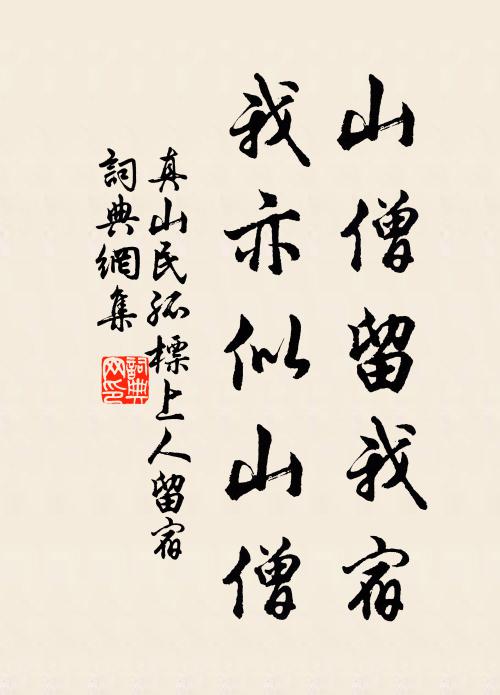 山僧留我宿
我亦似山僧
真山民孤標上人留宿
詞典網集
詞典
网印